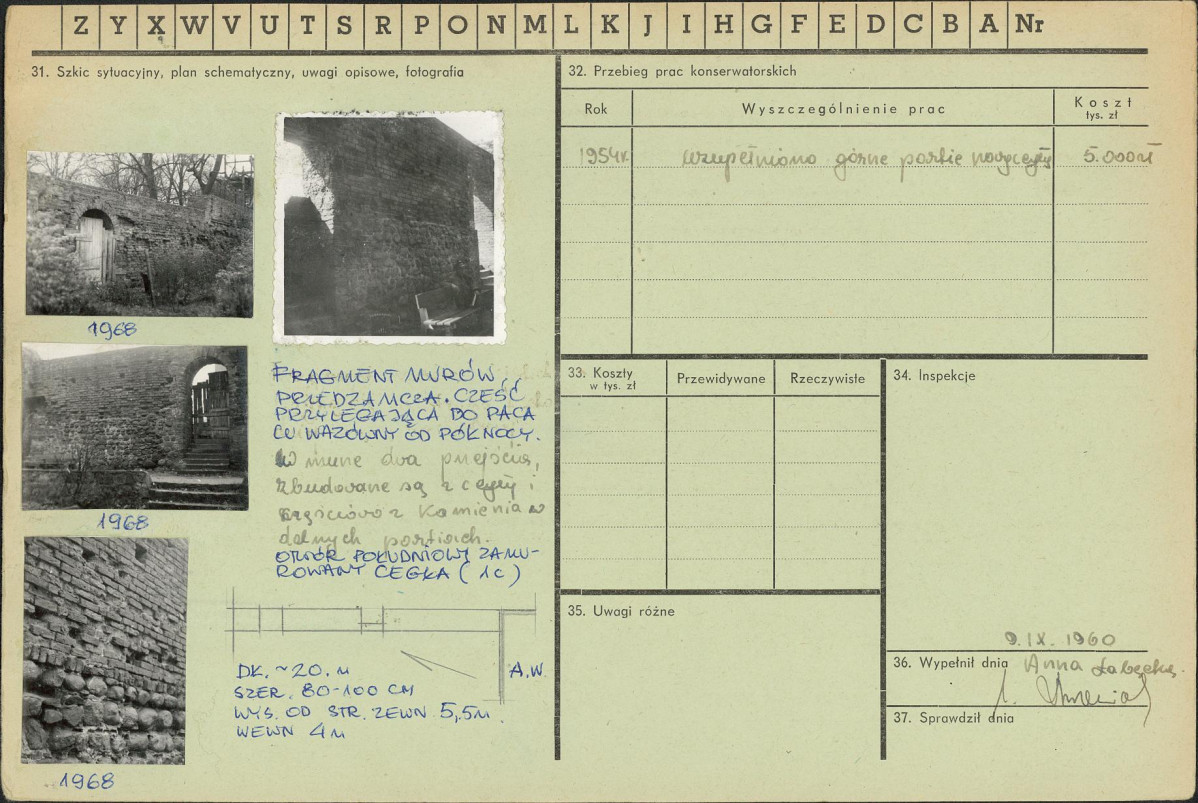 Z Y X W V U T S R P O N M L K J I H G F E D C B A Nr
31. Szkic sytuacyjny, plan schematyczny, uwagi opisowe, fotografia
1968
1968
1968
FRAGMENT MURÓW
PRZEDZAMCZA. CZEŚĆ
PRZYLEGAJĄCA DO PAŁA
CU WAZÓWNY OD PÓŁNOCY.
W murze dwa przejścia,
zbudowane są z cegły i
częściowo z kamienia w
dolnych partiach.
OTWÓR POŁUDNIOWY ZAMU-
ROWANY CEGŁĄ (1c)
A.W.
DŁ. ~20. M
SZER. 80-100 CM
WYS. OD STR. ZEWN 5,5M.
WEWN 4M
32. Przebieg prac konserwatorskich
Rok Wyszczególnienie prac Koszt
tys. zł
1954r. Uzupełniono górne partie nową cegłą 5.000zł
33. Koszty
w tys. zł
Przewidywane Rzeczywiste
34. Inspekcje
35. Uwagi różne
9.IX.1960
36. Wypełnił dnia Anna
37. Sprawdził dnia